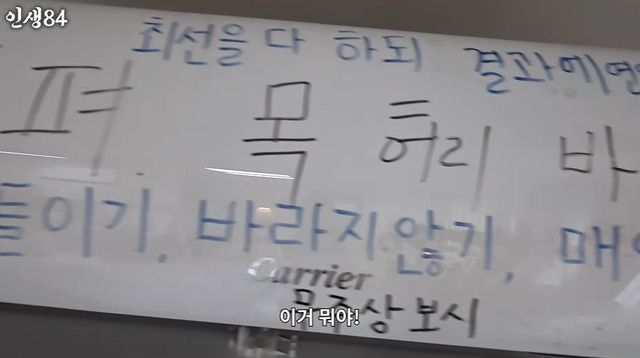 인생84
최선을 다 하되 결과에
펴 목 허리 바
들이기, 바라지않기, 매
Carrier
무주상 보시
이거 뭐야!